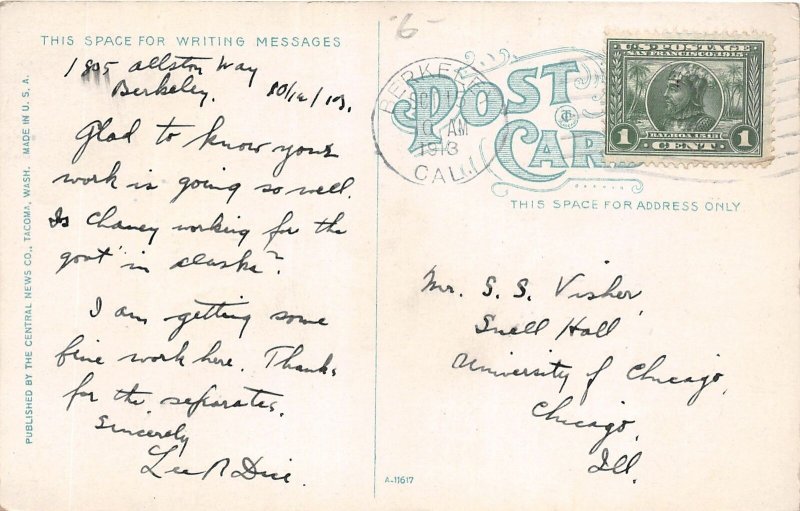 6
THIS SPACE FOR WRITING MESSAGES
1805 Allston Way
Berkeley. 10/12/13.
Glad to know your
work is going so well.
Is Chaney working for the
govt in Alaska?
I am getting some
fine work here. Thanks
for the separates.
Sincerely
Lee R Dice
PUBLISHED BY THE CENTRAL NEWS CO., TACOMA, WASH. MADE IN U.S.A.
POST
CARD
BERKELEY
AM
1913
CAL.
U.S. POSTAGE
SAN FRANCISCO, 1915
BALBOA 1513
1 CENT 1
THIS SPACE FOR ADDRESS ONLY
Mr. S. S. Visher,
Snell Hall
University of Chicago,
Chicago,
Ill.
A-11617